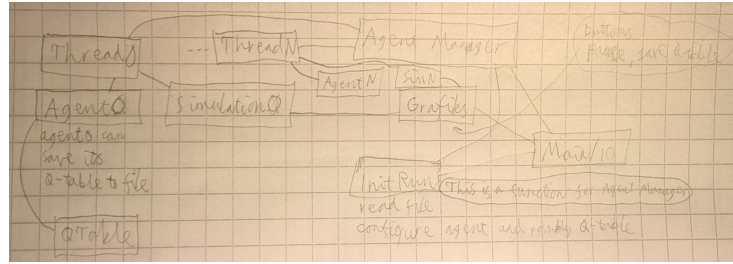 Thread0
... ThreadN
Agent Manager
buttons
Pause, save Q-table
AgentN
SimN
Agent0
Simulation0
Grafiks
agents can
save its
Q-table to file
Main/io
InitRun
This is a function for Agent Manager
read file
configure agent and possibly Q-table
QTable